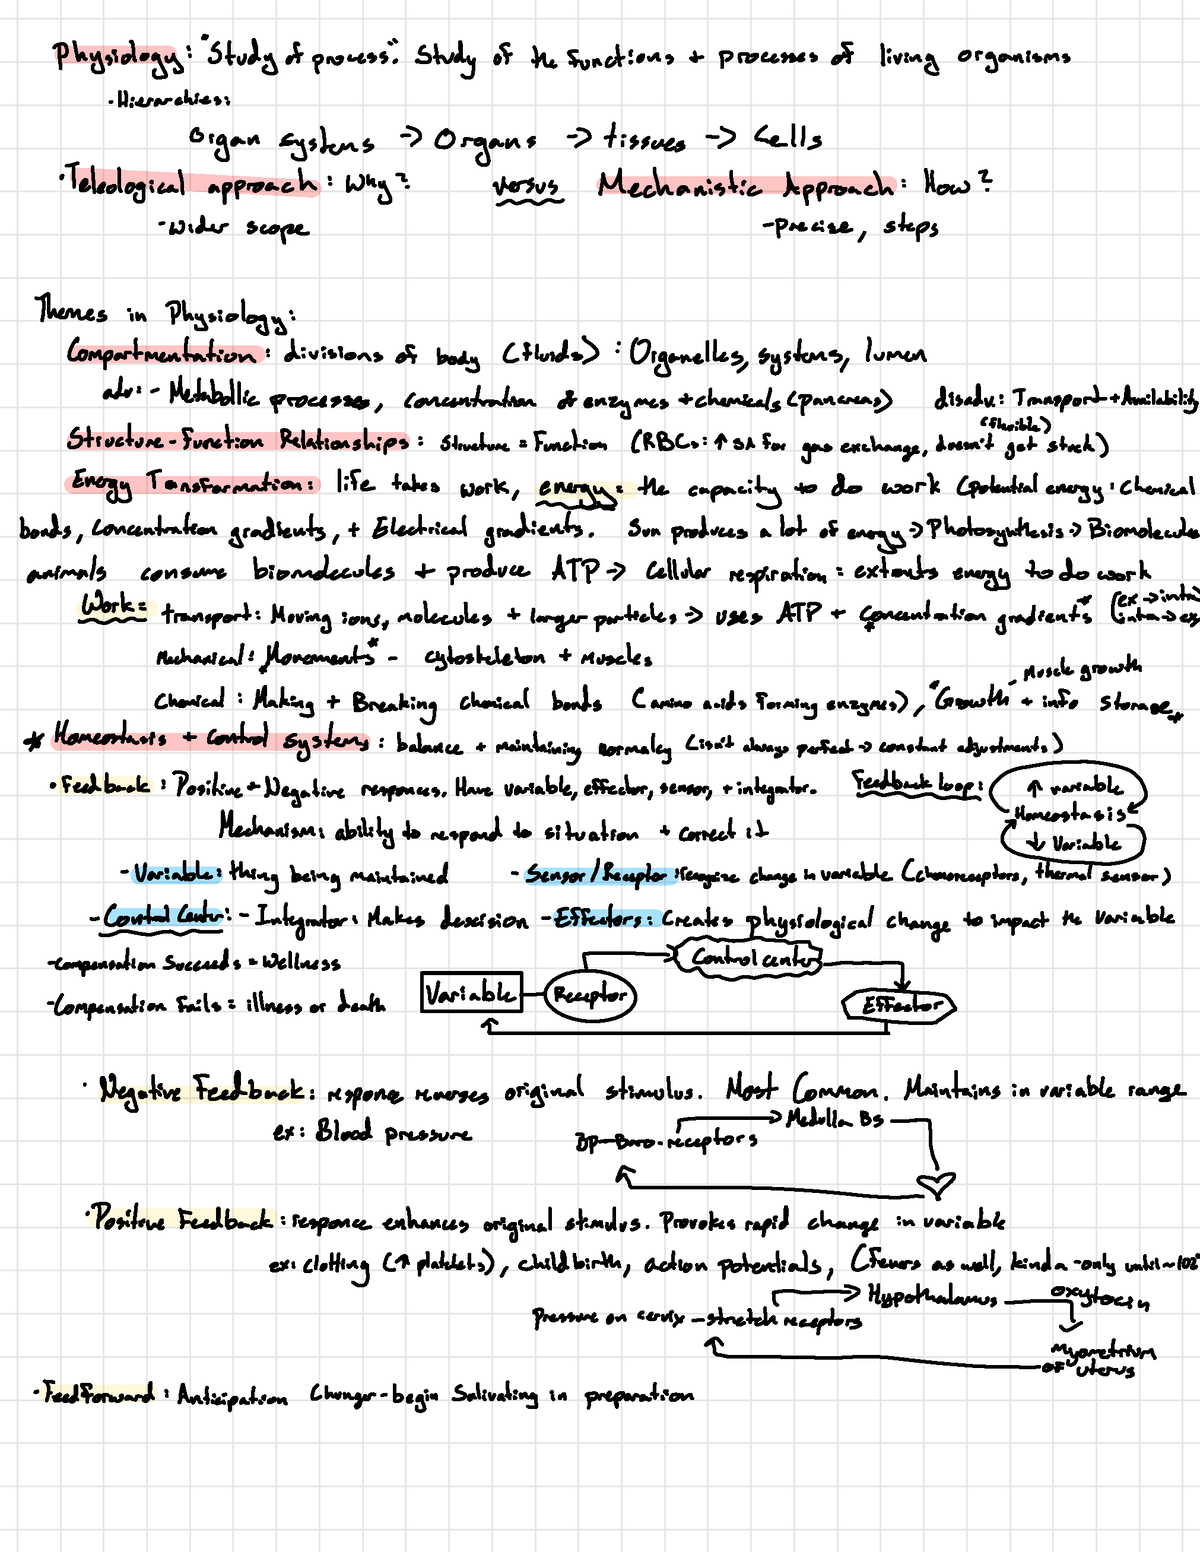 Physiology: "Study of process". Study of the functions + processes of living organisms
· Hierarchies:
Organ systems -> Organs -> tissues -> Cells
· Teleological approach: Why? versus Mechanistic Approach: How?
- Wider scope - Precise, steps
Themes in Physiology:
Compartmentation: divisions of body (fluids) : Organelles, systems, lumen
adv: - Metabollic processes, concentration of enzymes + chemicals (pancreas) disadv.: Transport + Availability
(flexible)
Structure-Function Relationships: Structure = Function (RBCs: ↑ SA for gas exchange, doesn't get stuck)
Energy Transformation: life takes work, energy: the capacity to do work (potential energy: Chemical
bonds, Concentration gradients, + Electrical gradients. Sun produces a lot of energy -> Photosynthesis -> Biomolecules
animals consume biomolecules + produce ATP -> Cellular respiration: extracts energy to do work
Work= transport: Moving ions, molecules + larger particles -> uses ATP + *Concentration gradients* (ex -> intra)
(intra -> ex
Mechanical: *Movements* - cytoskeleton + Muscles
- Muscle growth
Chemical: Making + Breaking chemical bonds (amino acids forming enzymes), "Growth" + info Storage
* Homeostasis + Control Systems: balance + maintaining normalcy (isn't always perfect -> constant adjustments)
· Feedback: Positive + Negative responces. Have variable, effector, sensor, + integrator. Feedback loop: ↑ variable
Homeostasis
↓ Variable
Mechanism: ability to respond to situation + correct it
- Variable: thing being maintained - Sensor/Receptor: recognize change in variable (chemoreceptors, thermal sensor)
- Control Center: - Integrator: Makes descision - Effectors: Creates physiological change to impact the variable
- compensation Succeeds = Wellness
- Compensation Fails = illness or death
Variable Receptor Control center Effector
· Negative Feedback: response reverses original stimulus. Most Common. Maintains in variable range
ex: Blood pressure BP-Baro-receptors Medulla BS
· Positive Feedback: responce enhances original stimulus. Provokes rapid change in variable
ex: clotting (↑ platelets), childbirth, action potentials, (fevers as well, kinda - only until ~102°
Pressure on cervix - stretch receptors Hypothalamus oxytocin
Myometrium
of uterus
· Feedforward: Anticipation (hunger - begin Salivating in preparation